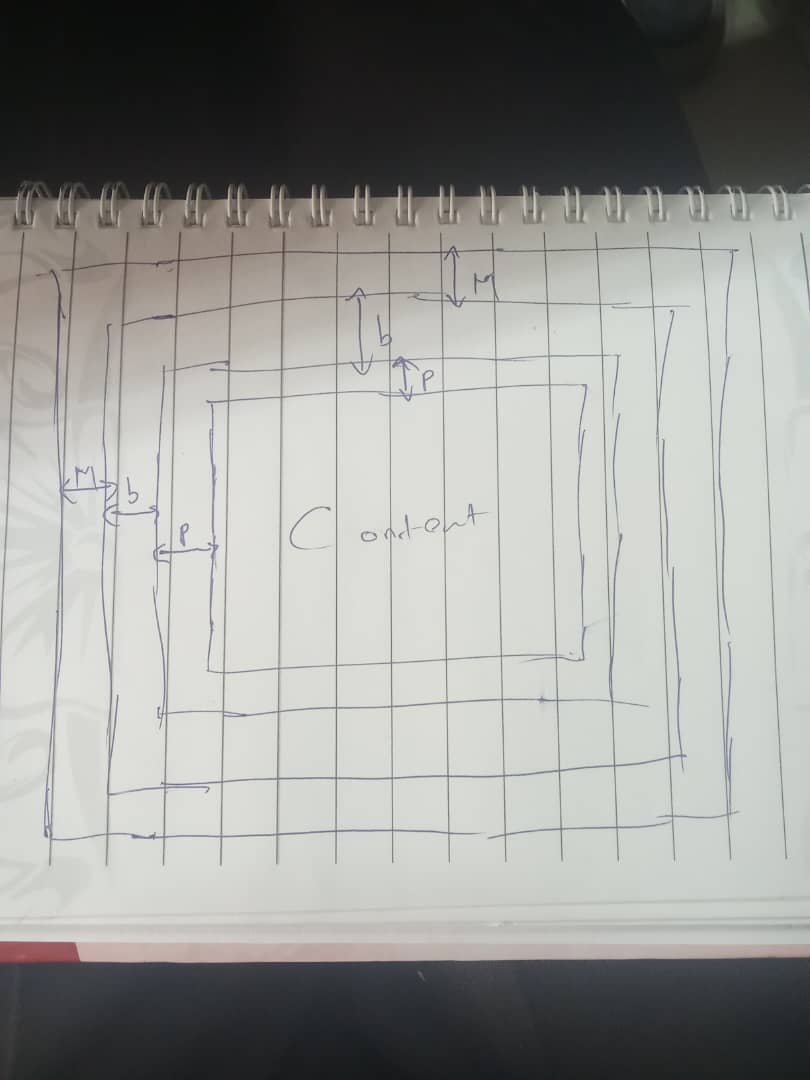 M
b
P
M
b
P
Content